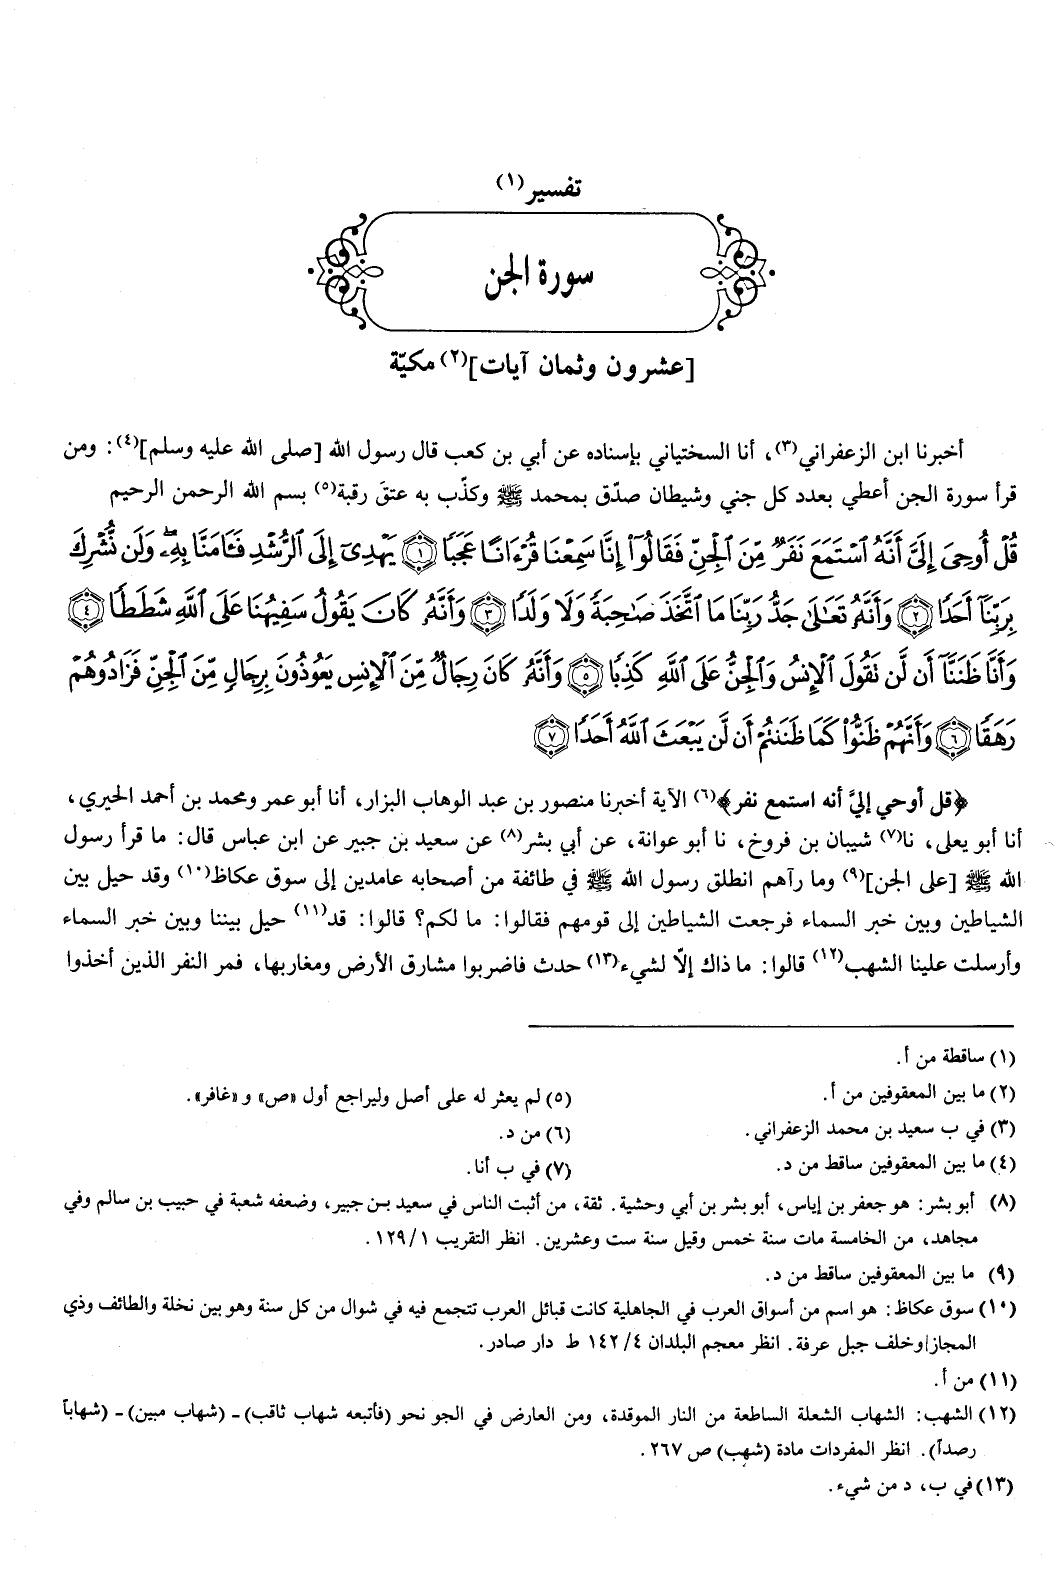 تفسير(١)
سورة الجن
[عشرون وثمان آيات](٢) مكيّة
أخبرنا ابن الزعفراني(٣)، أنا السختياني بإسناده عن أبي بن كعب قال رسول الله [صلى الله عليه وسلم](٤): ومن
قرأ سورة الجن أعطي بعدد كل جني وشيطان صدّق بمحمد ﷺ وكذّب به عتقَ رقبة(٥) بسم الله الرحمن الرحيم
قُلْ أُوحِىَ إِلَىَّ أَنَّهُ ٱسْتَمَعَ نَفَرٌ مِّنَ ٱلْجِنِّ فَقَالُوٓا۟ إِنَّا سَمِعْنَا قُرْءَانًا عَجَبًا ﴿١﴾ يَهْدِىٓ إِلَى ٱلرُّشْدِ فَـَٔامَنَّا بِهِۦ وَلَن نُّشْرِكَ
بِرَبِّنَآ أَحَدًا ﴿٢﴾ وَأَنَّهُۥ تَعَـٰلَىٰ جَدُّ رَبِّنَا مَا ٱتَّخَذَ صَـٰحِبَةً وَلَا وَلَدًا ﴿٣﴾ وَأَنَّهُۥ كَانَ يَقُولُ سَفِيهُنَا عَلَى ٱللَّهِ شَطَطًا ﴿٤﴾
وَأَنَّا ظَنَنَّآ أَن لَّن تَقُولَ ٱلْإِنسُ وَٱلْجِنُّ عَلَى ٱللَّهِ كَذِبًا ﴿٥﴾ وَأَنَّهُۥ كَانَ رِجَالٌ مِّنَ ٱلْإِنسِ يَعُوذُونَ بِرِجَالٍ مِّنَ ٱلْجِنِّ فَزَادُوهُمْ
رَهَقًا ﴿٦﴾ وَأَنَّهُمْ ظَنُّوا۟ كَمَا ظَنَنتُمْ أَن لَّن يَبْعَثَ ٱللَّهُ أَحَدًا ﴿٧﴾
﴿قل أوحي إليَّ أنه استمع نفر﴾(٦) الآية أخبرنا منصور بن عبد الوهاب البزار، أنا أبو عمر ومحمد بن أحمد الحيري،
أنا أبو يعلى، نا(٧) شيبان بن فروخ، نا أبو عوانة، عن أبي بشر(٨) عن سعيد بن جبير عن ابن عباس قال: ما قرأ رسول
الله ﷺ [على الجن](٩) وما رآهم انطلق رسول الله ﷺ في طائفة من أصحابه عامدين إلى سوق عكاظ(١٠) وقد حيل بين
الشياطين وبين خبر السماء فرجعت الشياطين إلى قومهم فقالوا: ما لكم؟ قالوا: قد(١١) حيل بيننا وبين خبر السماء
وأرسلت علينا الشهب(١٢) قالوا: ما ذاك إلّا لشيء(١٣) حدث فاضربوا مشارق الأرض ومغاربها، فمر النفر الذين أخذوا
(١) ساقطة من أ.
(٢) ما بين المعقوفين من أ.
(٣) في ب سعيد بن محمد الزعفراني.
(٤) ما بين المعقوفين ساقط من د.
(٥) لم يعثر له على أصل وليراجع أول «ص» و«غافر».
(٦) من د.
(٧) في ب أنا.
(٨) أبو بشر: هو جعفر بن إياس، أبو بشر بن أبي وحشية. ثقة، من أثبت الناس في سعيد بن جبير، وضعفه شعبة في حبيب بن سالم وفي
مجاهد، من الخامسة مات سنة خمس وقيل سنة ست وعشرين. انظر التقريب ١٢٩/١.
(٩) ما بين المعقوفين ساقط من د.
(١٠) سوق عكاظ: هو اسم من أسواق العرب في الجاهلية كانت قبائل العرب تتجمع فيه في شوال من كل سنة وهو بين نخلة والطائف وذي
المجاز وخلف جبل عرفة. انظر معجم البلدان ١٤٢/٤ ط دار صادر.
(١١) من أ.
(١٢) الشهب: الشهاب الشعلة الساطعة من النار الموقدة، ومن العارض في الجو نحو (فأتبعه شهاب ثاقب) - (شهاب مبين) - (شهاباً
رصداً). انظر المفردات مادة (شهب) ص ٢٦٧.
(١٣) في ب، د من شيء.